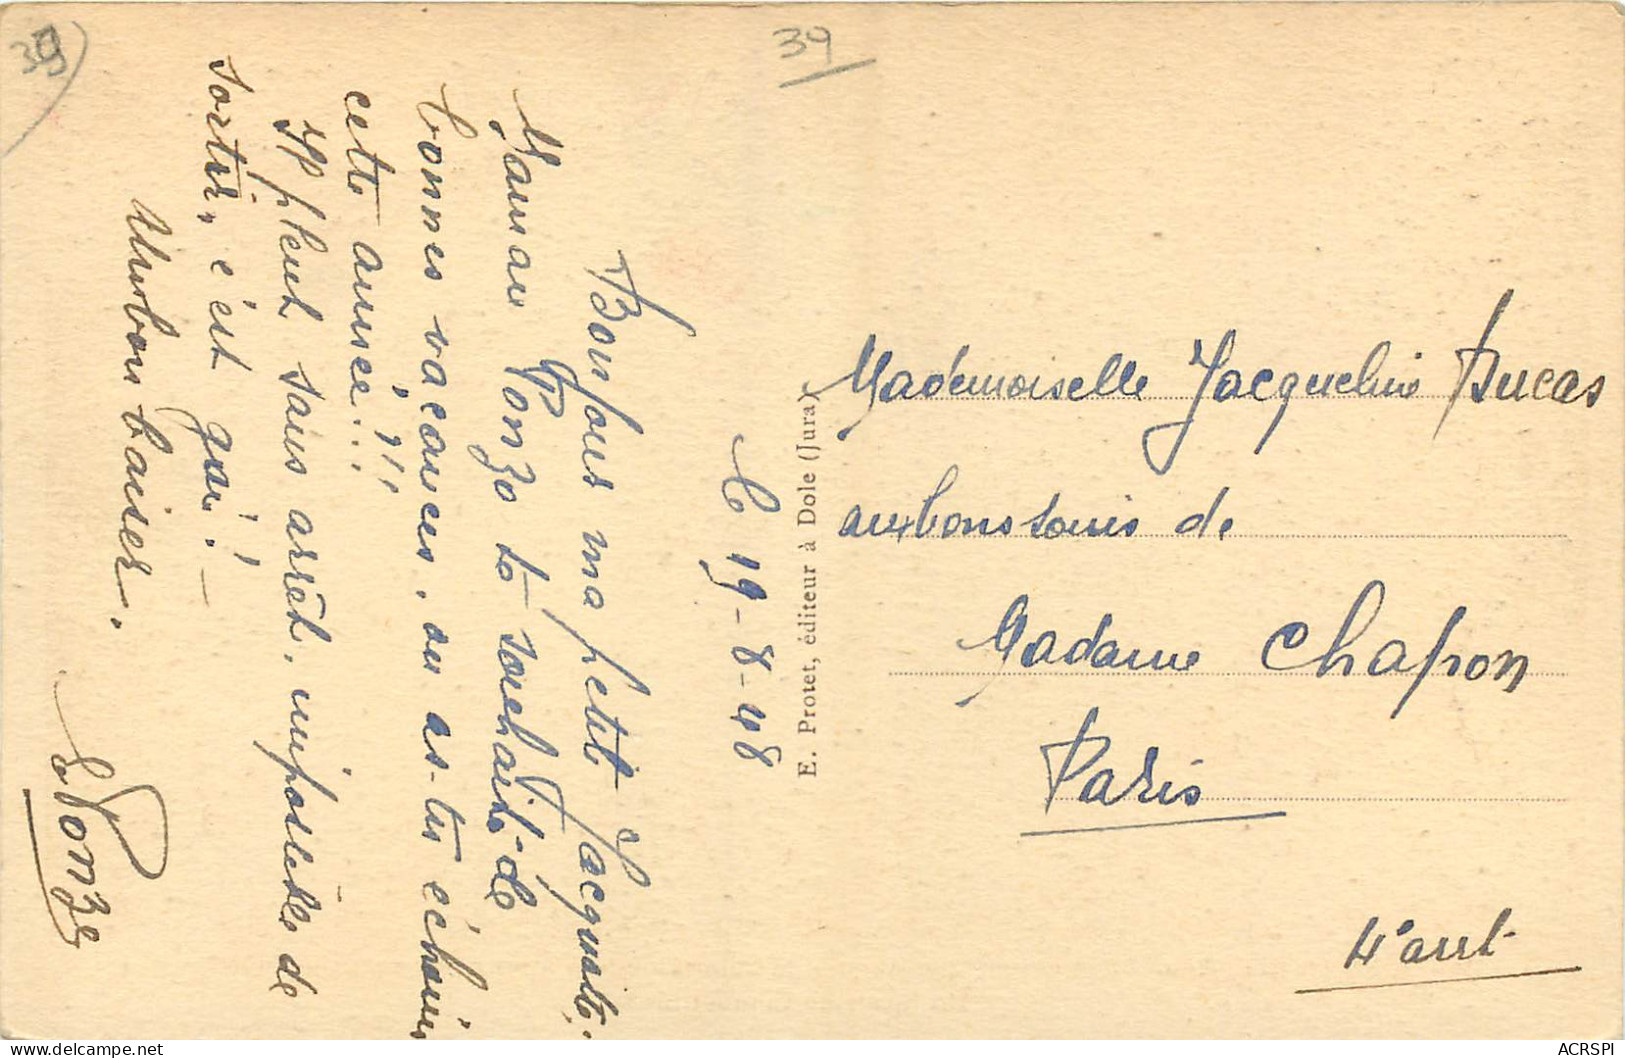 39
39
Le 19-8-48
Bonjour ma petite Jacquotte,
Maman Ponzo te souhaite de
bonnes vacances, ou as-tu échoué
cette année...!!!
Il pleut sans arrêt, impossible de
sortir, c'est gai! -
Un bon baiser.
Ponzo
E. Protet, éditeur à Dole (Jura)
Mademoiselle Jacqueline Ducas
aux bons soins de
Madame Chapon
Paris
4e arrt
ACRSPI